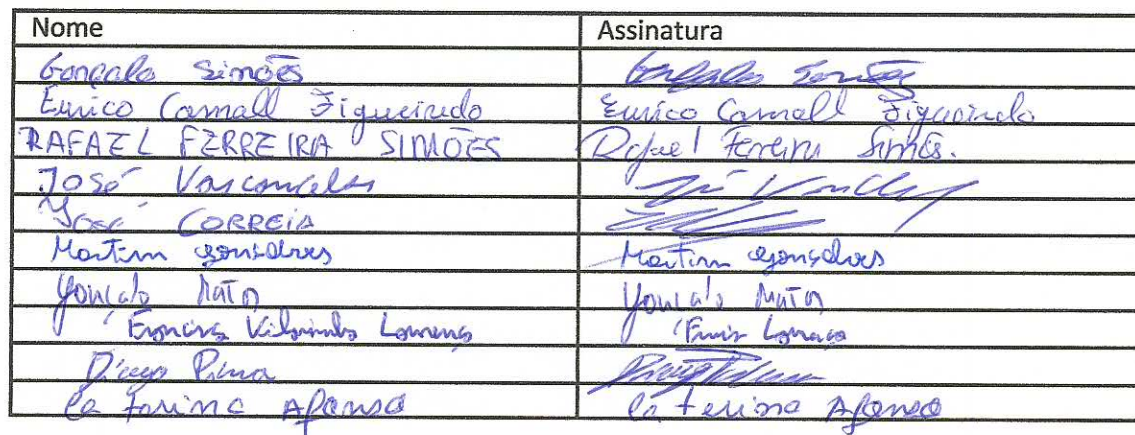 Nome Assinatura
Gonçalo Simões Gonçalo Simões
Eurico Camall Figueiredo Eurico Camall Figueiredo
RAFAEL FERREIRA SIMÕES Rafael Ferreira Simões.
José Vasconcelos José
José CORREIA
Martim Gonçalves Martim Gonçalves
Gonçalo Mato Gonçalo Mato
Lourenço
Diogo Pina Diogo
Catarina Afonso Catarina Afonso